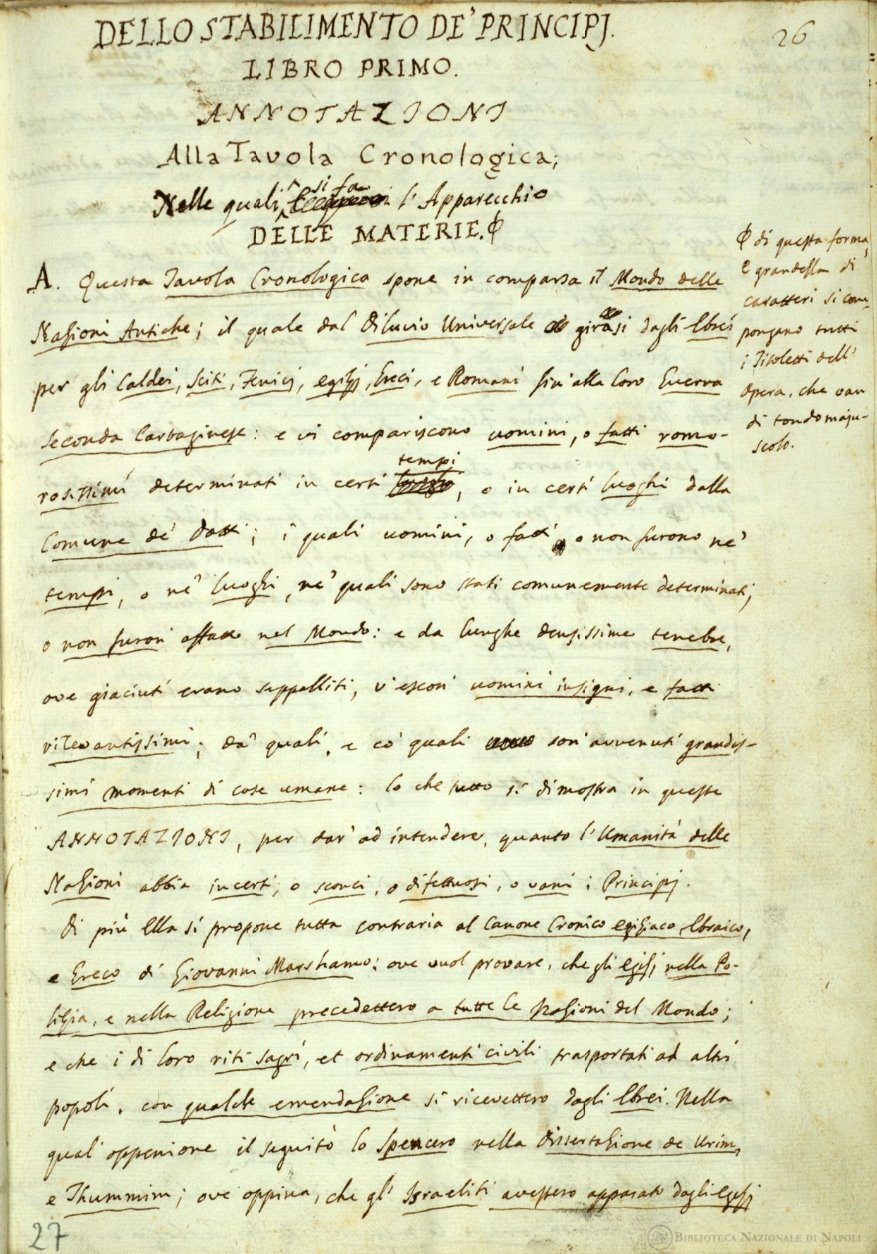 DELLO STABILIMENTO DE' PRINCIPJ.
26
LIBRO PRIMO.
ANNOTAZIONI
Alla Tavola Cronologica;
si fa
Nelle quali l'Apparecchio
DELLE MATERIE.
di questa forma,
e grandezza di
caratteri si com-
pongano tutti
i Titoletti dell'
Opera, che van
di tondo maju-
scolo.
A. Questa Tavola Cronologica spone in comparsa il Mondo delle
Nazioni Antiche; il quale dal Diluvio Universale girasi dagli Ebrei
per gli Caldei, Sciti, Fenicj, Egizj, Greci, e Romani fin' alla loro Guerra
Seconda Cartaginese: e vi compariscono uomini, o fatti romo-
tempi
rosissimi determinati in certi , o in certi luoghi dalla
Comune de' Dotti; i quali uomini, o fatti, o non furono ne'
tempi, o ne' luoghi, ne' quali sono stati comunemente determinati,
o non furon affatto nel Mondo: e da lunghe densissime tenebre,
ove giaciuti erano seppelliti, v'escon uomini insigni, e fatti
rilevantissimi; da' quali, e co' quali son' avvenuti grandis-
simi momenti di cose umane: lo che tutto si dimostra in queste
ANNOTAZIONI, per dar' ad intendere, quanto l'Umanità delle
Nazioni abbia incerti, o sconci, o difettuosi, o vani i Principj.
Di più Ella si propone tutta contraria al Canone Cronico Egiziaco, Ebraico,
e Greco di Giovanni Marshamo: ove vuol provare, che gli Egizj nella Po-
lizia, e nella Religione precedettero a tutte le Nazioni del Mondo;
e che i di loro riti sagri, et ordinamenti civili trasportati ad altri
popoli, con qualche emendazione si ricevettero dagli Ebrei. Nella
qual' oppenione il seguitò lo Spencero nella dissertazione de Urim,
e Thummim; ove oppina, che gl' Israeliti avessero apparato dagli Egizj
27
BIBLIOTECA NAZIONALE DI NAPOLI